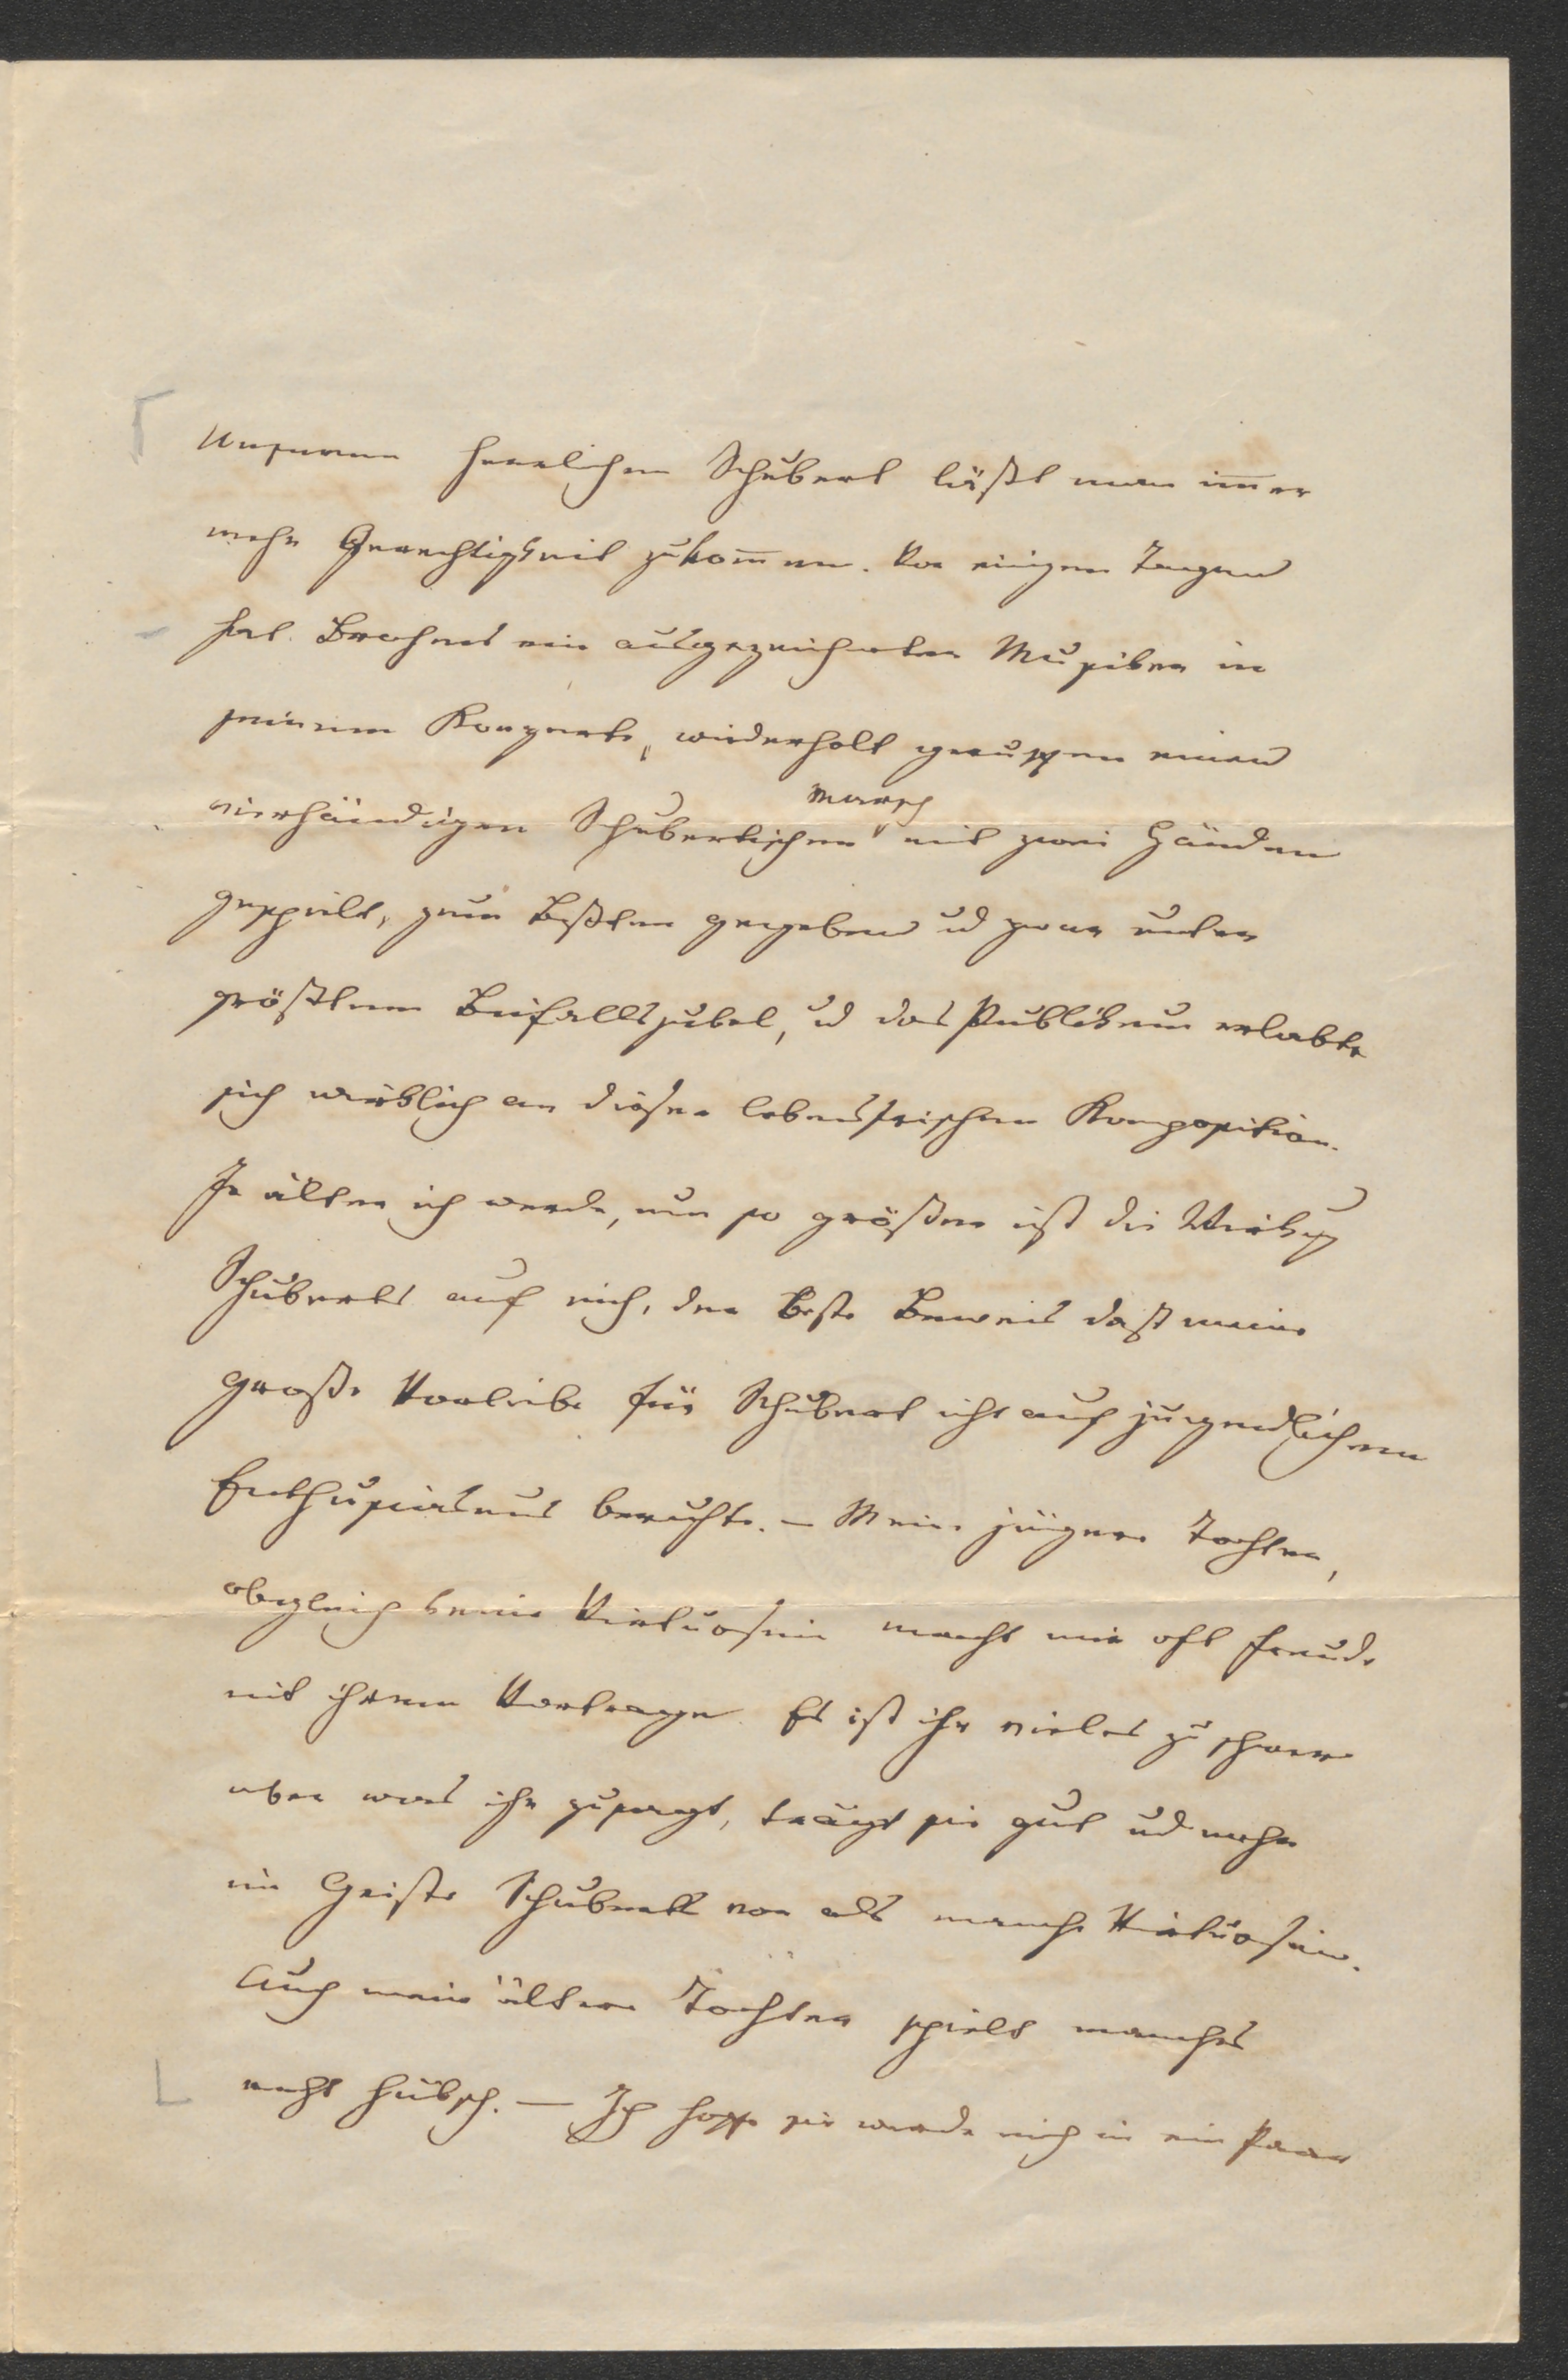 Unserem herrlichen Schubert läßt man im̄er
mehr Gerechtigkeit zukom̄en. Vor einigen Tagen
hat Brahms ein ausgezeichneter Musiker in
seinem Konzerte, wiederholt gerufen einen
vierhändigen Schubertischen Marsch mit zwei Händen
gespielt, zum Beßten gegeben ud zwar unter
größtem Beifallsjubel, ud das Publikum erlabte
sich wirklich an dieser lebensfrischen Komposition.
Je älter ich werde, um so größer ist die Wirkug
Schuberts auf mich, der beste Beweis daß meine
große Vorliebe für Schubert nicht auf jugendlichem
Enthusiasmus beruhte. – Meine jügere Tochter,
obgleich keine Virtuosin macht mir oft Freude
mit ihrem Vortrage. Es ist ihr vieles zu schwer
aber was ihr zusagt, trägt sie gut ud mehr
im Geiste Schuberts vor als manche Virtuosin.
Auch meine ältere Tochter spielt manches
recht hübsch. – Ich hoffe sie werde mich in ein Paar